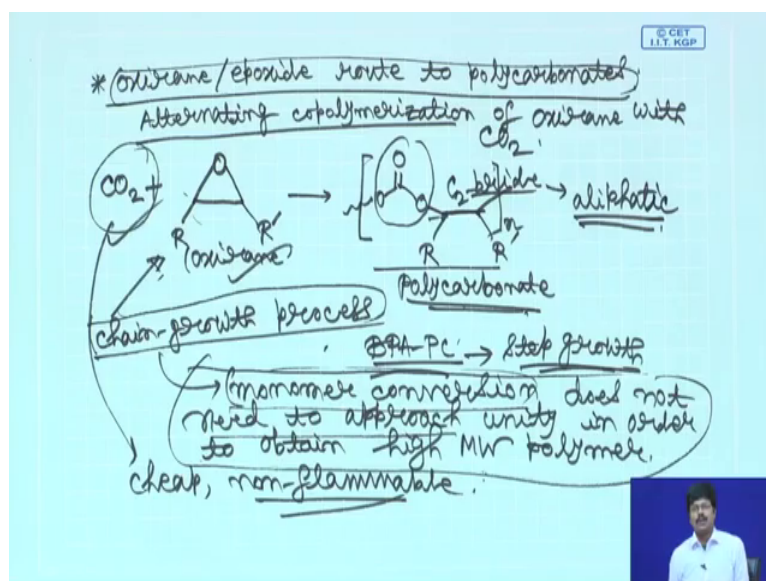 © CET
I.I.T. KGP
* oxirane/epoxide route to polycarbonates
Alternating copolymerization of oxirane with
CO2.
CO2 + O → O O O C2-bridge → aliphatic
R R' R R n
(oxirane) Polycarbonate
chain-growth process
BPA-PC → Step growth
→ monomer conversion does not
need to approach unity in order
to obtain high MW polymer.
cheap, non-flammable.